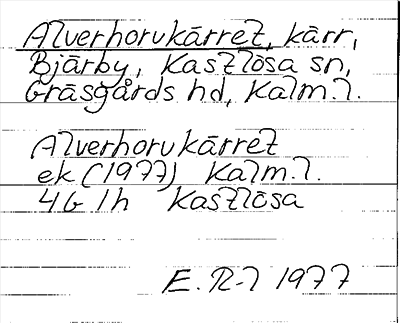 Alverhorukärret, kärr,
Bjärby, Kastlösa sn,
Gräsgårds hd, Kalm.l.
Alverhorukärret
ek (1977) Kalm.l.
4G 1h Kastlösa
E. R-l 1977